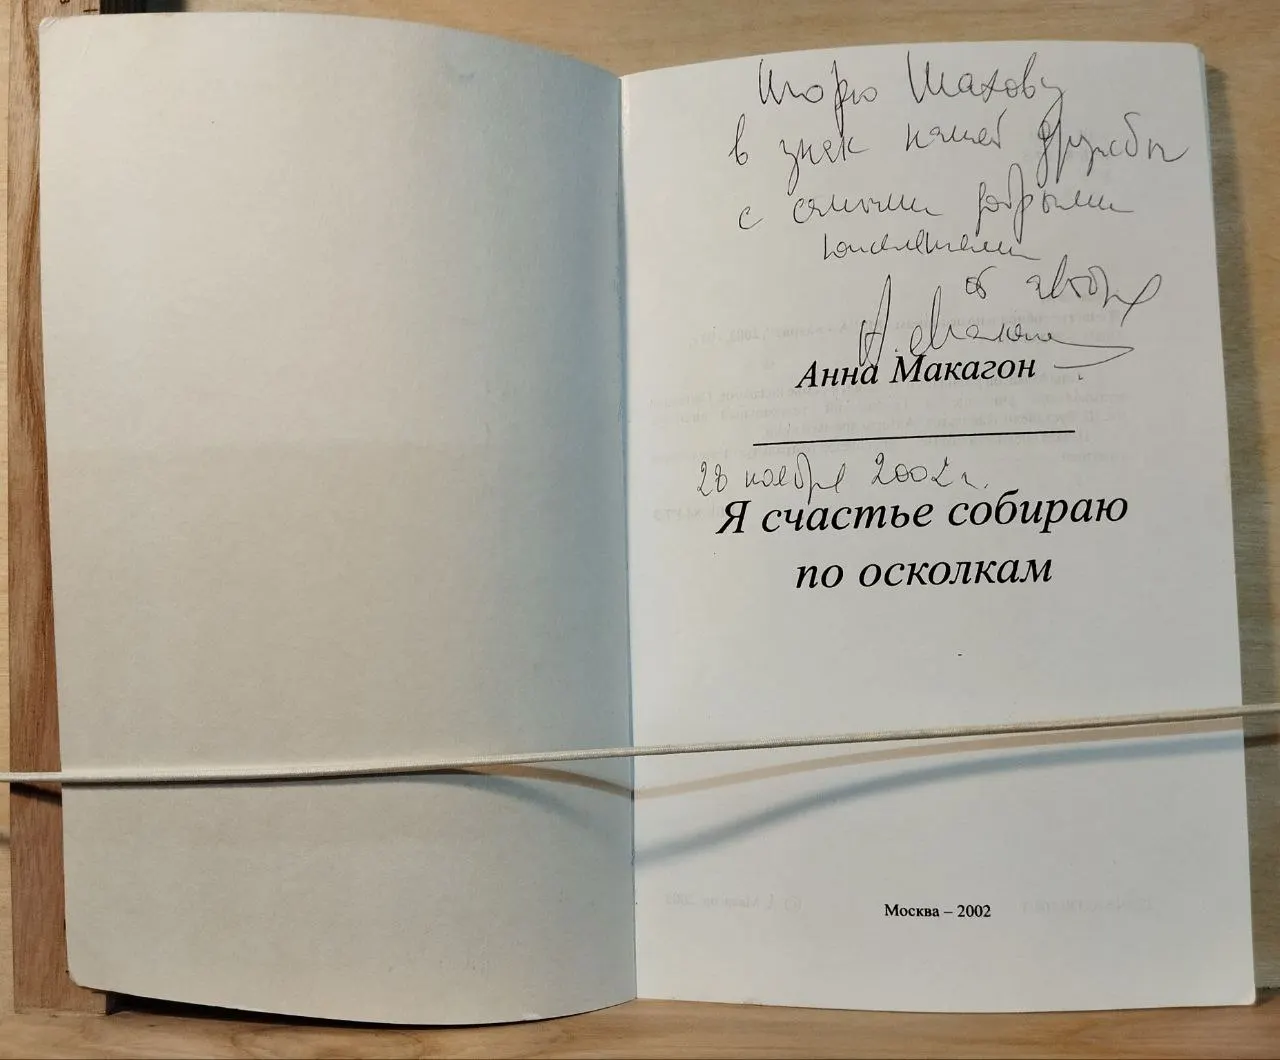 Игорю Шахову
в знак нашей дружбы
с самыми добрыми
пожеланиями
от автора
А. Макагон
Анна Макагон
28 ноября 2002 г.
Я счастье собираю
по осколкам
Москва – 2002